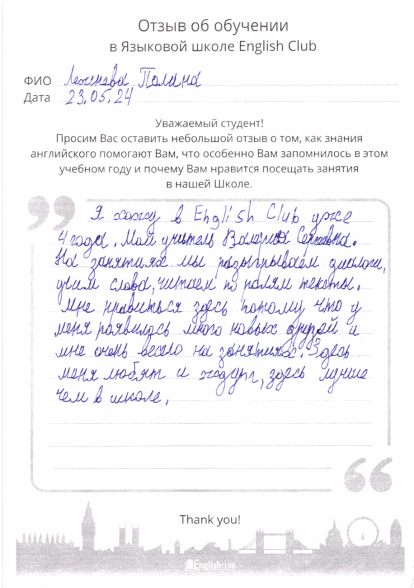 Отзыв об обучении
в Языковой школе English Club
ФИО Полина
Дата 23.05.24
Уважаемый студент!
Просим Вас оставить небольшой отзыв о том, как знания
английского помогают Вам, что особенно Вам запомнилось в этом
учебном году и почему Вам нравится посещать занятия
в нашей Школе.
Я хожу в English Club уже
4 года. Мой учитель Валерия Сергеевна.
На занятиях мы разыгрываем диалоги,
учим слова, читаем по ролям тексты.
Мне нравиться здесь потому что у
меня появилось много новых друзей и
мне очень весело на занятиях. Здесь
меня любят и ждут, здесь лучше
чем в школе.
Thank you!
English Club